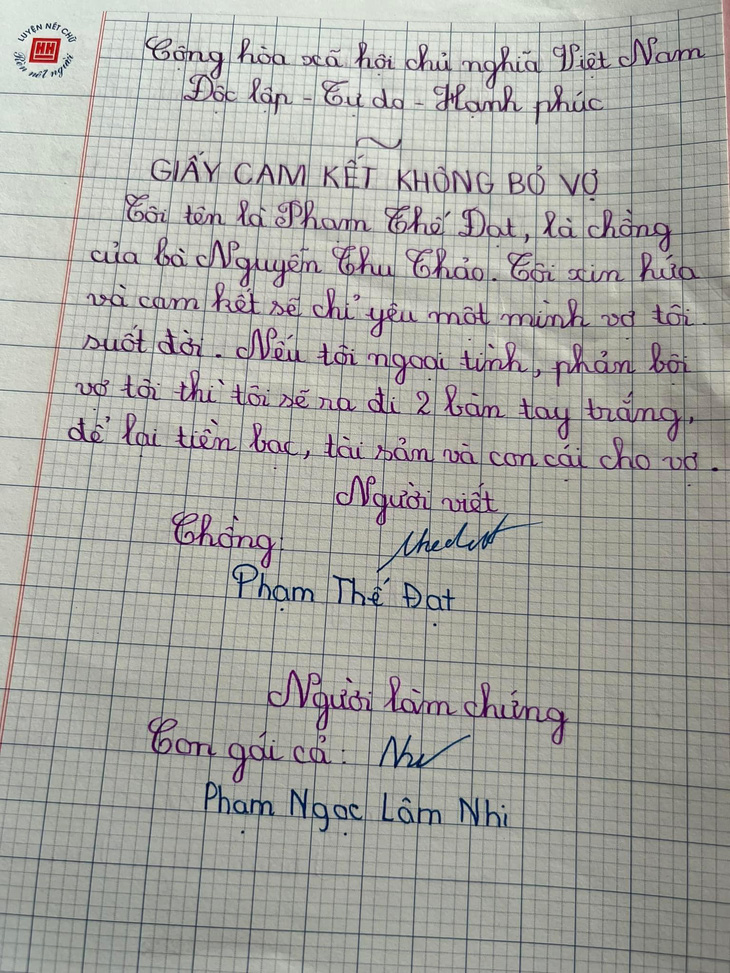 LUYỆN NÉT CHỮ
HH
Rèn nét người
Cộng hòa xã hội chủ nghĩa Việt Nam
Độc lập - Tự do - Hạnh phúc
GIẤY CAM KẾT KHÔNG BỎ VỢ
Tôi tên là Phạm Thế Đạt, là chồng
của bà Nguyễn Thu Thảo. Tôi xin hứa
và cam kết sẽ chỉ yêu một mình vợ tôi
suốt đời. Nếu tôi ngoại tình, phản bội
vợ tôi thì tôi sẽ ra đi 2 bàn tay trắng,
để lại tiền bạc, tài sản và con cái cho vợ.
Người viết
Chồng:
Phạm Thế Đạt
Người làm chứng
Con gái cả: Nhi
Phạm Ngọc Lâm Nhi